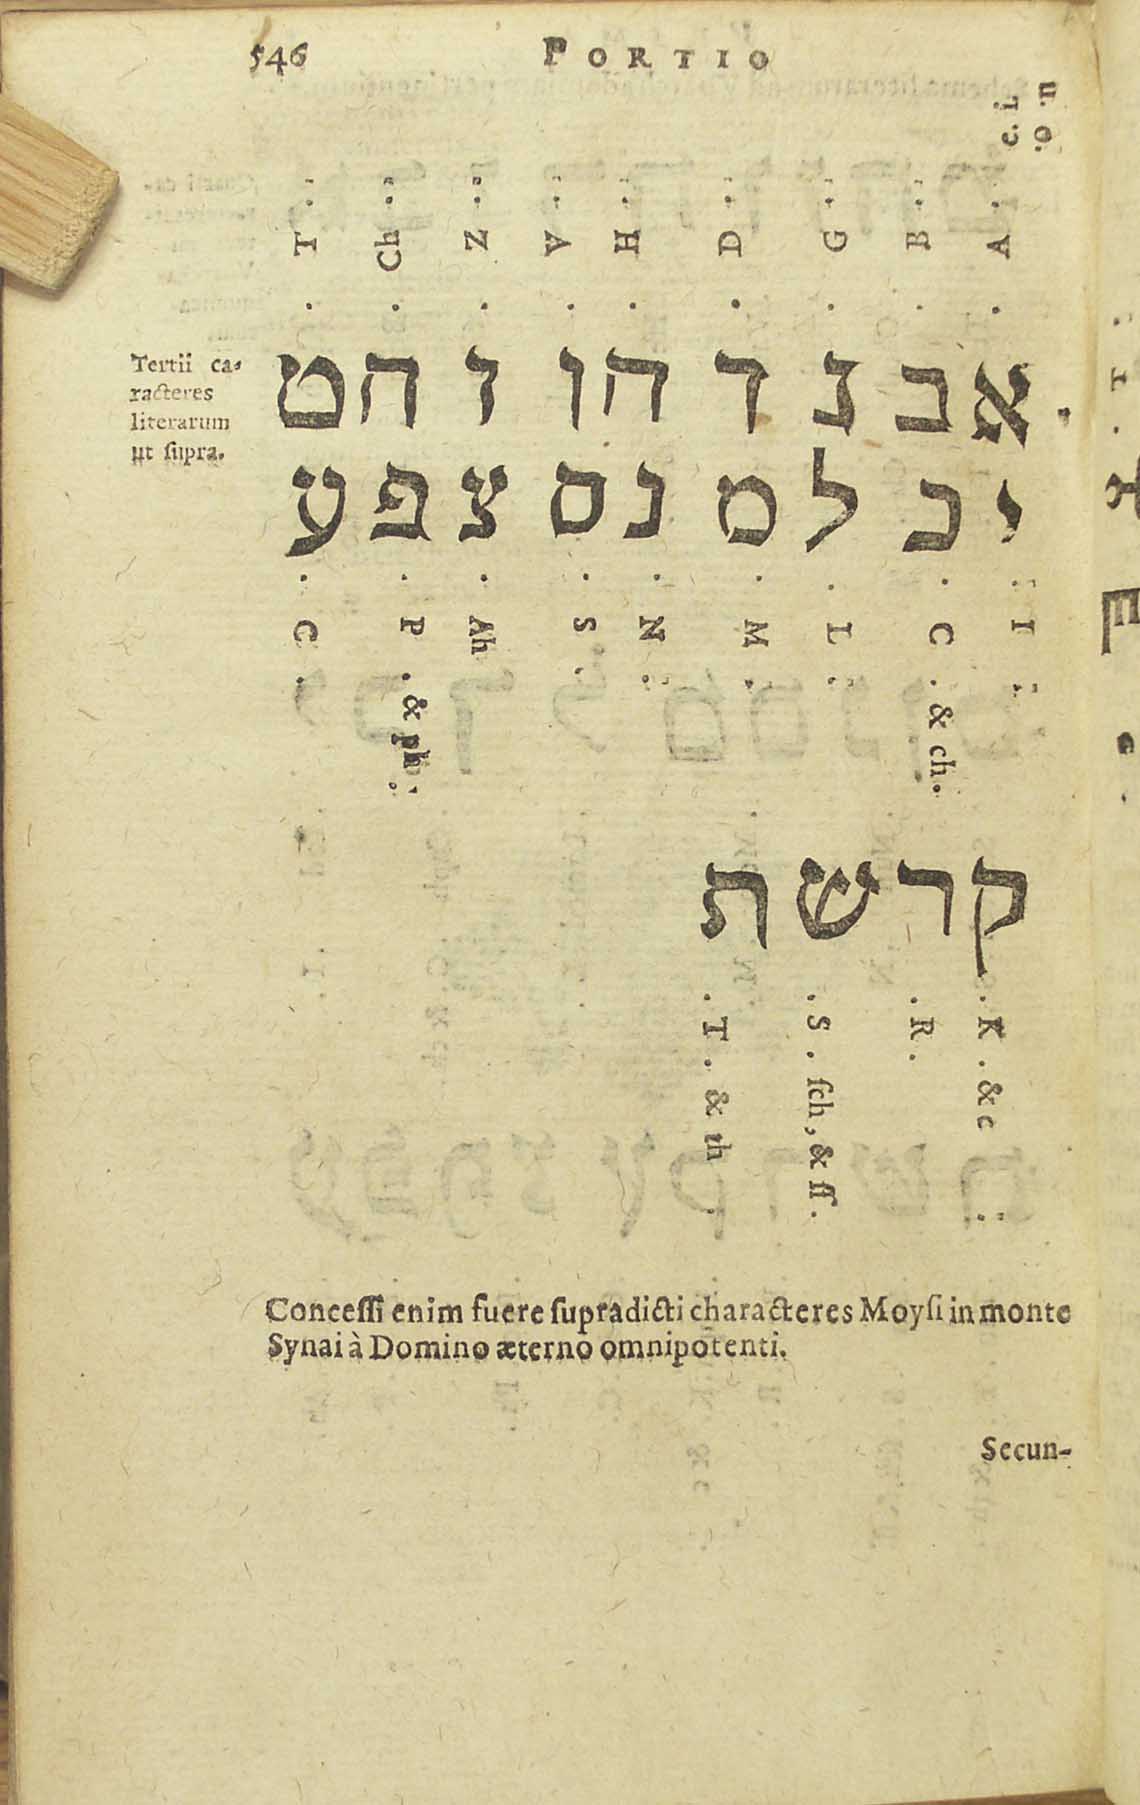 546 PORTIO
u. o.
i. c.
.A. .B. .G. .D. .H. .V. .Z. .Ch. .T.
א ב ג ד ה ו ז ח ט
Tertii ca-
racteres
literarum
ut ſupra.
י כ ל מ נ ס צ פ ע
.I. .C. & ch. .L. .M. .N. .S. .Ah .P. & ph. .C.
ק ר ש ת
.K. & c .R. .S. ſch, & ſſ. .T. & th.
Conceſſi enim fuere ſupradicti characteres Moyſi in monte
Synai à Domino æterno omnipotenti.
Secun-